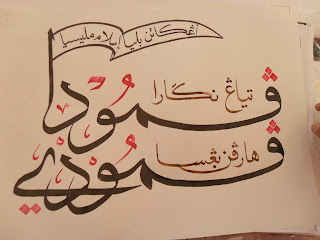 اڠكاتن بليا إسلام مليسيا
ڤمودا
تياڠ نݢارا
ڤمودي
هارڤن بڠسا